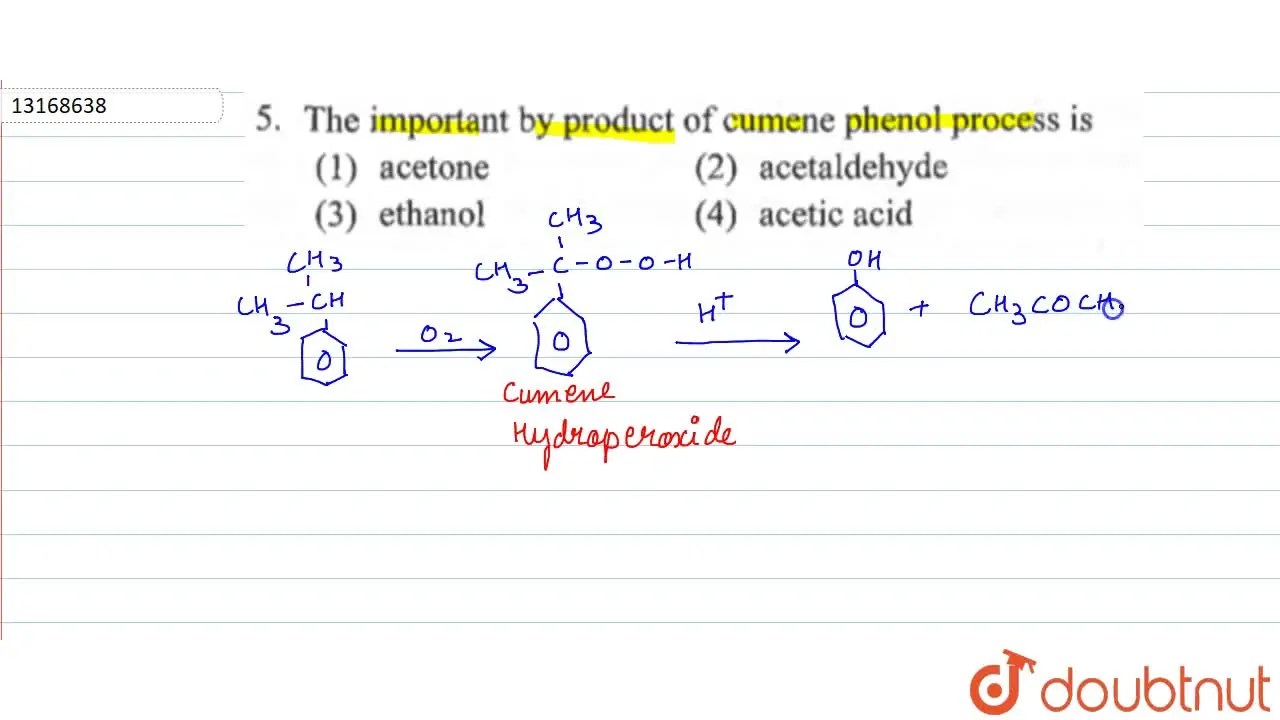 13168638
5. The important by product of cumene phenol process is
(1) acetone (2) acetaldehyde
(3) ethanol (4) acetic acid
CH3
CH3
CH3 - C - O - O - H
OH
CH3 - CH
O2
H+
+ CH3COCH3
Cumene
Hydroperoxide
doubtnut